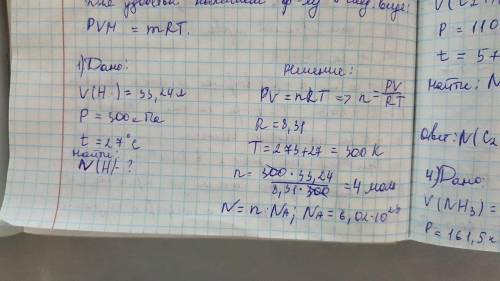 PVM = mRT.
1) Дано:
V(H ) = 33,24 л
P = 300 кПа
t = 27°C
найти:
N(H)= ?
Решение:
PV = nRT => n = PV/RT
R = 8,31
T = 273+27 = 300 K
n = 300 · 33,24 / 8,31 · 300 = 4 моль
N = n · NA; NA = 6,02·10²³
P = 110
t = 5+
найти: N
Ответ: N(C2
4) Дано:
V(NH3) =
P = 161,5 к